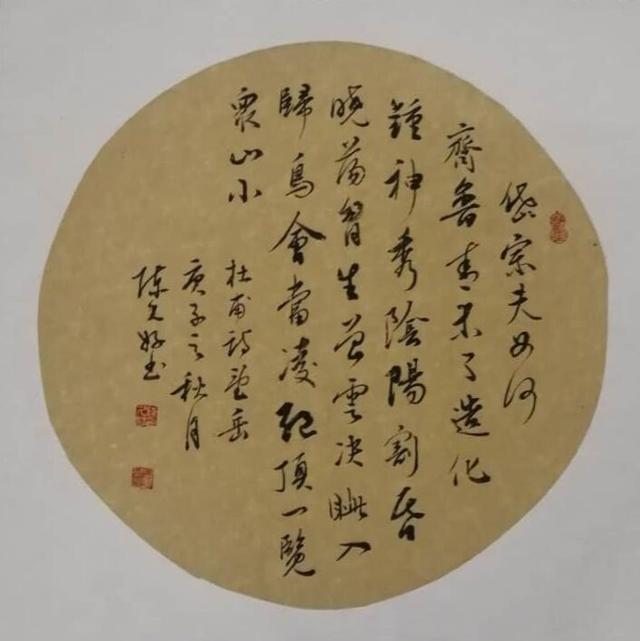 岱宗夫如何
齊魯青未了造化
鍾神秀陰陽割昏
曉蕩胷生曾雲决眥入
歸鳥會當凌絕頂一覽
眾山小
杜甫詩望岳
庚子之秋月
陈 书